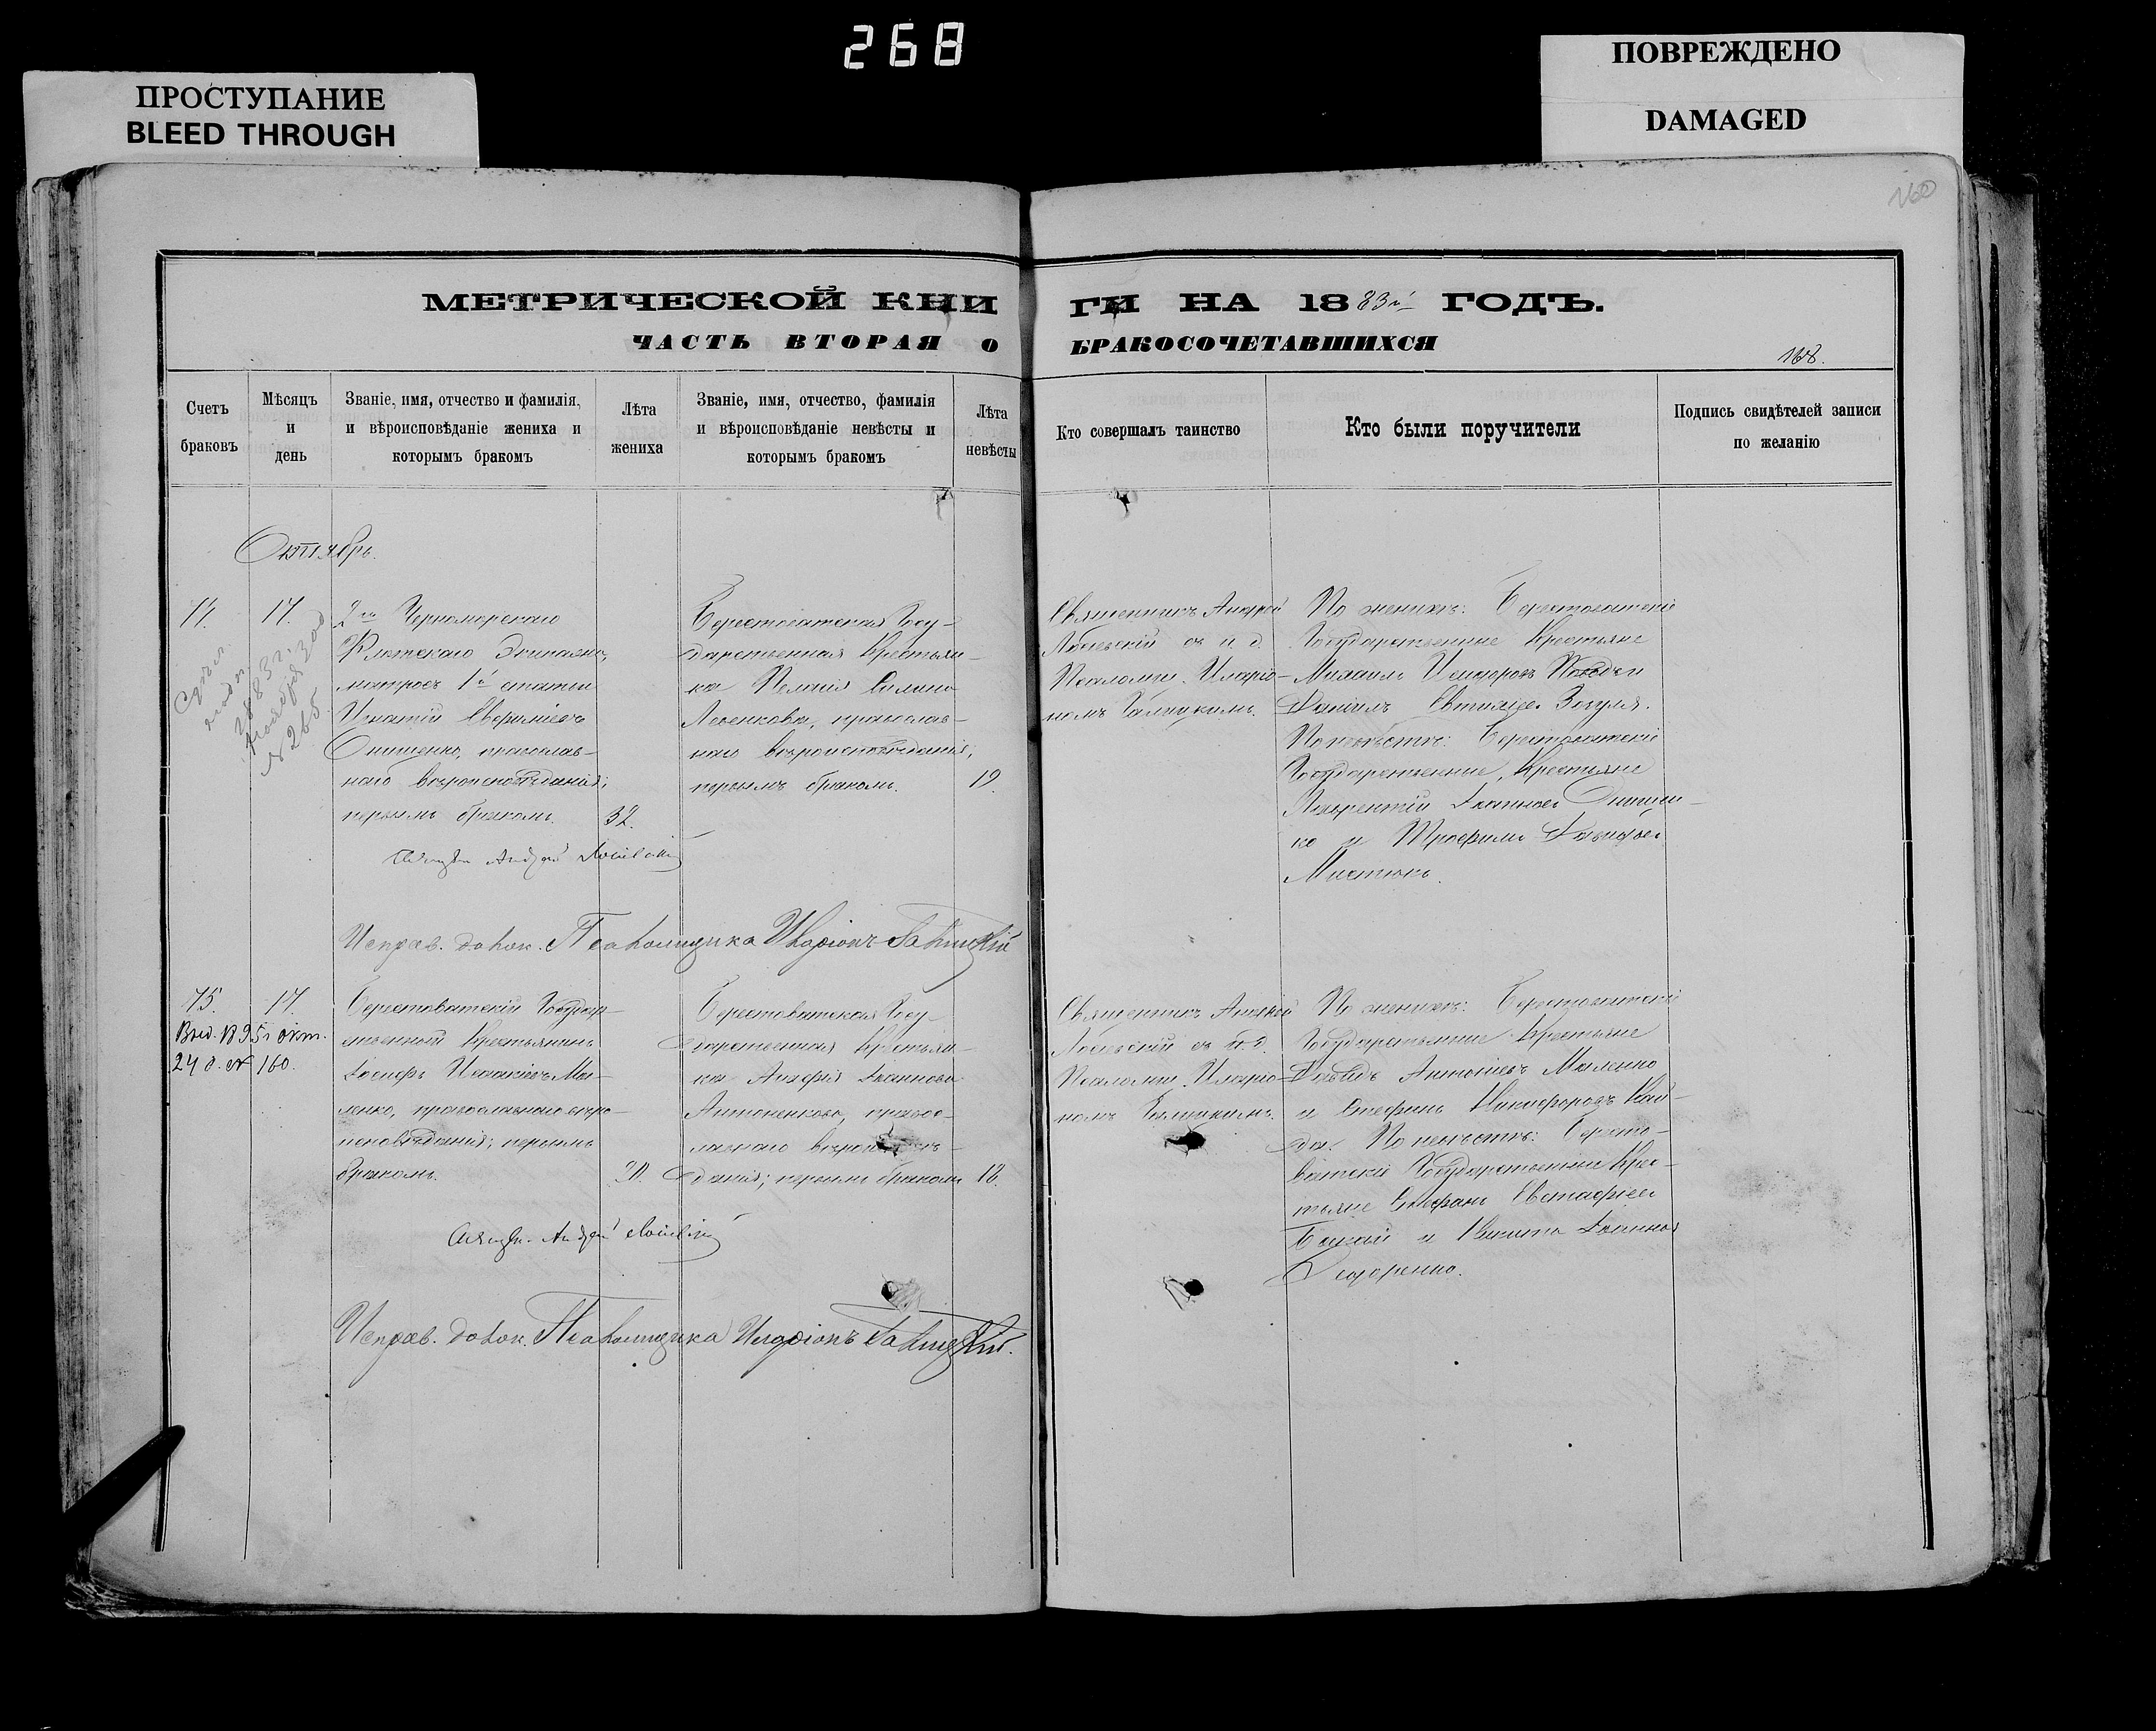 268
ПРОСТУПАНИЕ
BLEED THROUGH
ПОВРЕЖДЕНО
DAMAGED
160
МЕТРИЧЕСКОЙ КНИ ГИ НА 1883й ГОДЪ.
ЧАСТЬ ВТОРАЯ О БРАКОСОЧЕТАВШИХСЯ
168.
Счетъ
браковъ
Мѣсяцъ
и
день
Званіе, имя, отчество и фамилія,
и вѣроисповѣданіе жениха и
которымъ бракомъ
Лѣта
жениха
Званіе, имя, отчество, фамилія
и вѣроисповѣданіе невѣсты и
которымъ бракомъ
Лѣта
невѣсты
Кто совершалъ таинство
Кто были поручители
Подпись свидѣтелей записи
по желанію
Октябрь.
17.
2го Черноморскаго
Флотскаго Экипажа,
матросъ 1й статьи
Игнатій
Онищенко, православ-
наго вѣроисповѣданія;
первымъ бракомъ.
32.
1883 г.
Ноября
№ 265
Берестоватская Госу-
дарственная Крестьян-
ка Пелагія
православ-
наго вѣроисповѣданія,
первымъ бракомъ.
19.
Священникъ Андрей
съ и. д.
Псаломщ. Иларіо-
номъ Галицкимъ.
По женихѣ: Берестоватскіе
Государственные Крестьяне
Михаилъ и
Даніилъ Зозуля.
По невѣстѣ: Берестоватскіе
Государственные Крестьяне
Лаврентій Іоанновъ Онищен-
ко и Трофимъ
Андрей
Исправ. долж. Псаломщика Иларіонъ Галицкій
75. 17.
окт.
24 д. № 160.
Берестоватскій Государ-
ственный Крестьянинъ
Іосифъ Ма-
ленко, православнаго вѣро-
исповѣданія; первымъ
бракомъ.
Берестоватская Госу-
дарственная Крестьян-
ка Іоаннова
Антоненкова, правос-
лавнаго
данія; первымъ бракомъ
18.
Священникъ Андрей
съ и. д.
Псаломщ. Иларіо-
номъ Галицкимъ.
По женихѣ: Берестоватскіе
Государственные Крестьяне
Давидъ Антоніевъ Маленко
и Стефанъ Никифоровъ Кай-
да. По невѣстѣ: Бересто-
ватскіе Государственные Крес-
тьяне Стефанъ Евстафіевъ
и Никита Іоанновъ
Ѳедоренко.
Андрей
Исправ. долж. Псаломщика Иларіонъ Галицкій.